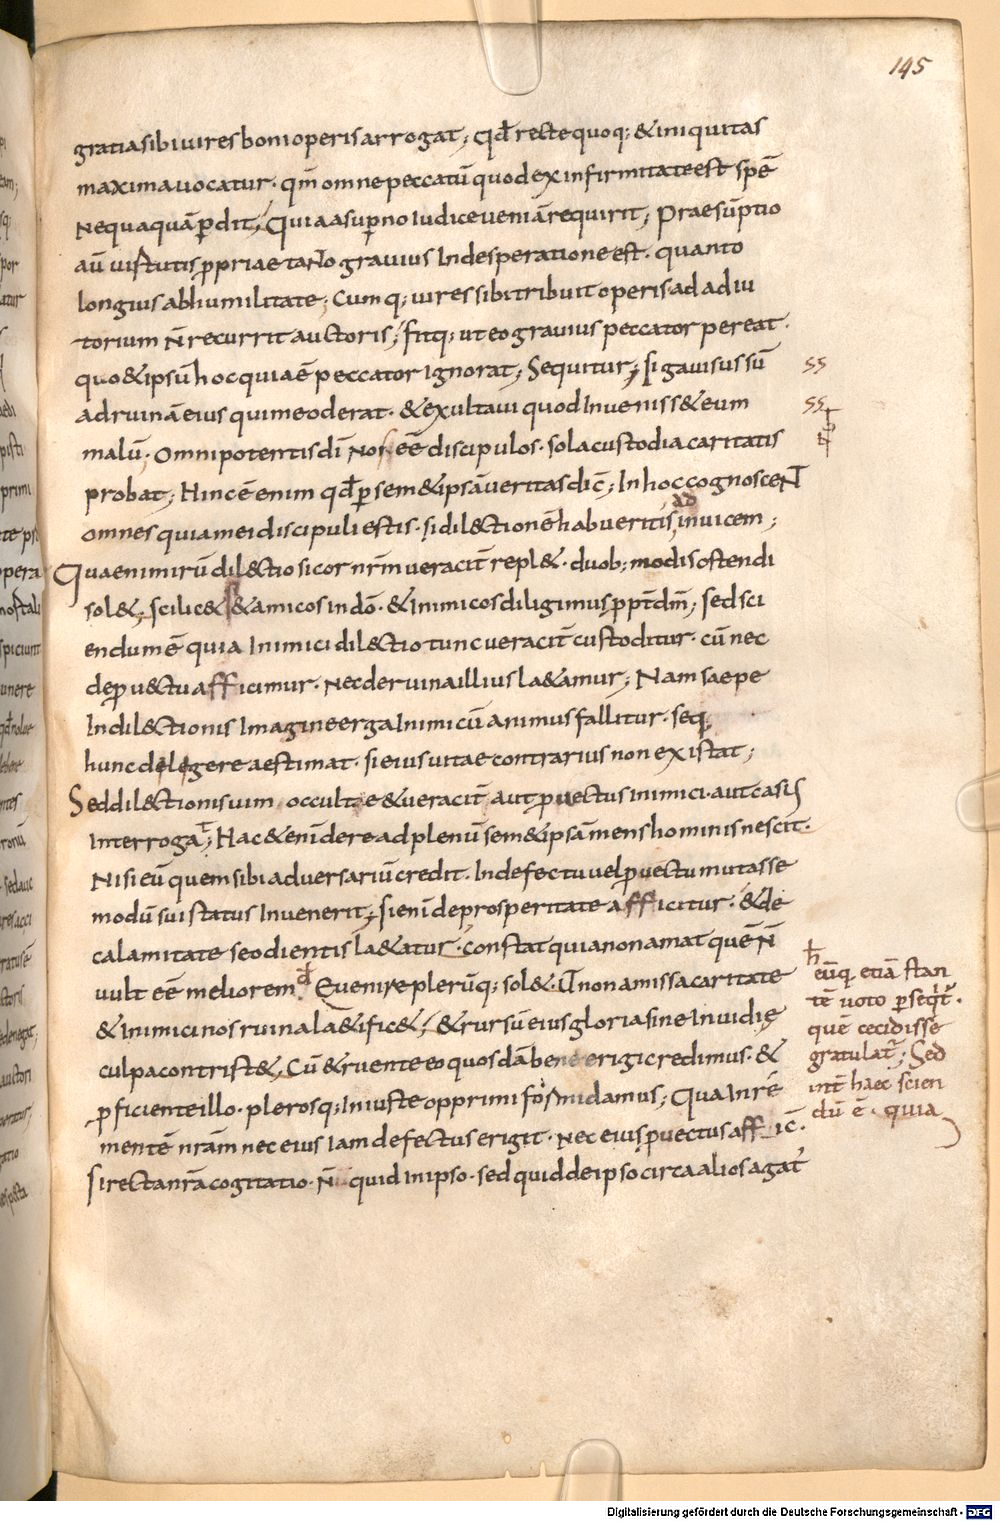 145
gratia sibi uires boni operis arrogat; Qđ recte quoq; & iniquitas
maxima uocatur· qm̄ omne peccatū quod ex infirmitate est spē
Nequaquā ꝑdit; Quia a suꝑno Iudice ueniā requirit; Praesūptio
aū uirtutis ꝓpriae taNto grauius In desperatione est· quanto
longius ab humilitate; Cumq; uires sibi tribuit operis ad adiu
torium N̄ recurrit auctoris; fitq; ut eo grauius peccator pereat·
quo & ipsū hoc quia ē peccator Ignorat; Sequitur; si gauisus sū
ad ruinā eius qui me oderat· & exultaui quod Inueniss& eum
malū· Omnipotentis dī Nos eē discipulos· sola custodia caritatis
probat; Hinc ē enim qđ ꝑ sem&ipsā ueritas dic̄; In hoc cognosceNT
omnes quia mei discipuli estis· si dil&tionē habueritis ad inuicem;
Quae nimirū dil&tio si cor nr̄m ueracit̄ repl&· duob; modis ostendi
sol&; scilic& & amicos in dō· & Inimicos diligimus ꝓpt̄ dm̄; sed sci
endum ē quia Inimici dil&tio tunc ueracit̄ custoditur· cū nec
de ꝓu&tu afficimur· Nec de ruina illius l&amur; Nam saepe
In dil&tionis Imagine erga Inimicū animus fallitur· seq;
hunc delegere aestimat· si eius uitae contrarius non existat;
Sed dil&tionis uim occultae & ueracit̄ aut ꝓuectus inimici· aut casus
Interrogat; Hac &eni de re ad plenū sem&ipsā mens hominis nescit·
Nisi eū quem sibi aduersariū credit· In defectu uel ꝓuectu mutasse
modū sui status Inuenerit; si eni de prosperitate afficitur· & de
calamitate se odientis la&atur· constat quia non amat quē N̄
uult eē meliorem· Euenire plerūq; sol&· ut non amissa caritate
& Inimici nos ruina la&ific&; & rursū eius gloria sine Inuidię
culpa contrist&; Cū & ruente eo quosdā bene erigi credimus· &
ꝓficiente illo· plerosq; Iniuste opprimi formidamus; Qua In re
mentē nr̄am nec eius Iam defectus erigit· Nec eius ꝓuectus affic̄·
si recta nr̄a cogitatio· N̄ quid In ipso· sed quid de ipso circa alios agat̄
ss
ss
eūq; etiā stan
tē uoto ꝑseqt̄·
quē cecidisse
gratulat̄; Sed
int̄ haec scien
dū ē· quia
Digitalisierung gefördert durch die Deutsche Forschungsgemeinschaft - DFG